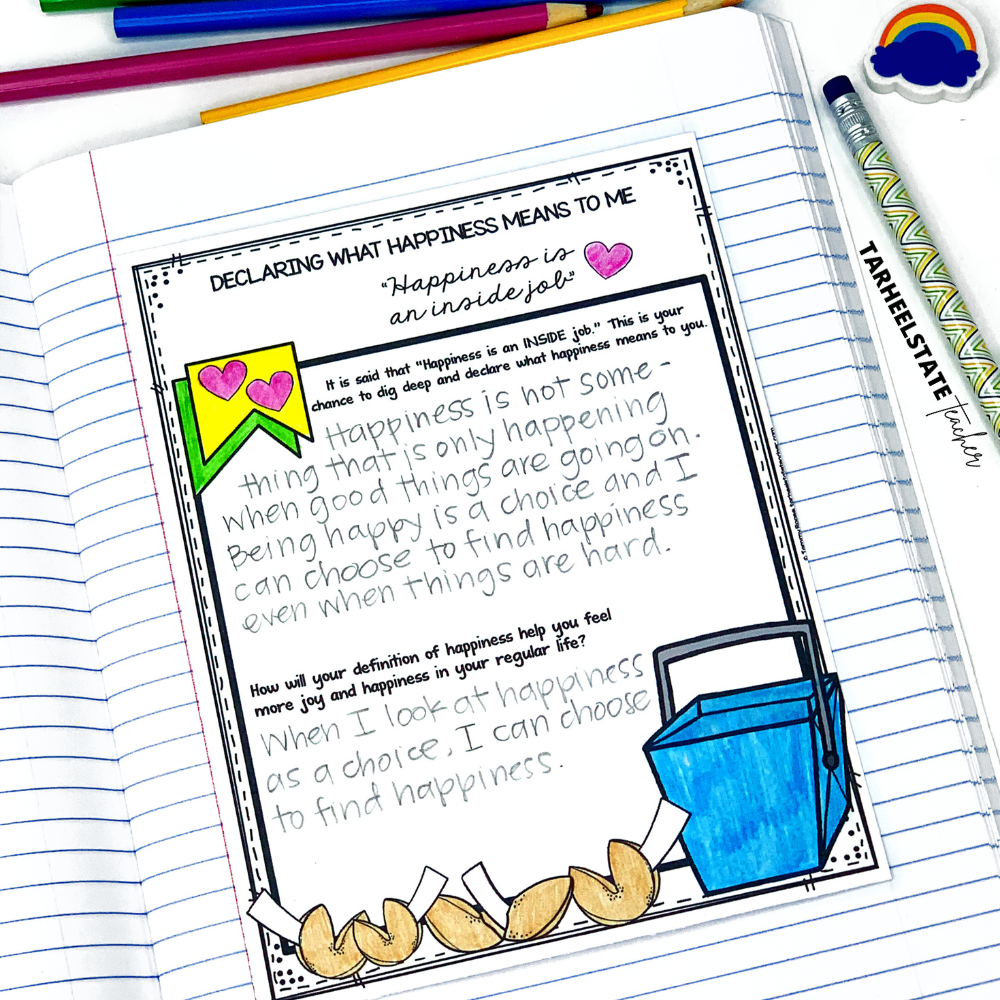 DECLARING WHAT HAPPINESS MEANS TO ME
"Happiness is
an inside job"
It is said that "Happiness is an INSIDE job." This is your
chance to dig deep and declare what happiness means to you.
Happiness is not some-
thing that is only happening
when good things are going on.
Being happy is a choice and I
can choose to find happiness
even when things are hard.
How will your definition of happiness help you feel
more joy and happiness in your regular life?
When I look at happiness
as a choice, I can choose
to find happiness.
TARHEELSTATE teacher